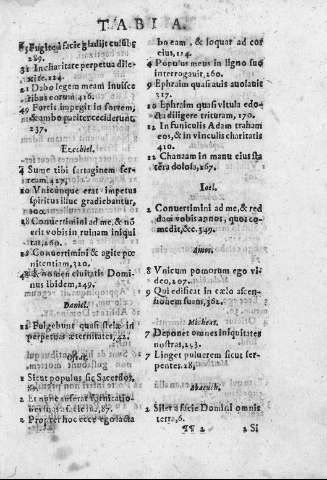 TABLA.
Fugite à facie gladij
289.
31 In charitate perpetua dile-
xi te.224.
21 Dabo legem meam in visce-
ribus eorum 416.
49 Fortis impegit in fortem,
& ambo pariter ceciderunt.
237.
Ezechiel.
4 Sume tibi sartaginem fer-
ream,427.
10 Vnicunque erat impetus
spiritus illuc gradiebantur,
100.
18 Conuertimini ad me, & nõ
erit vobis in ruinam iniqui
tas,260.
18 Conuertimini & agite pœ
nitentiam, 210.
48 & nomen ciuitatis Domi-
nus ibidem, 249.
Daniel.
12 Fulgebunt quasi stelæ in
perpetuas æternitates, 42.
Oseas.
1 Sicut populus sic Sacerdos,
2 Et none auferat fornicatio-
nes
2 Propter hoc ecce ego lacta
bo eam, & loquar ad cor
eius,114.
4 Populus meus in ligno suo
interrogauit, 260.
9 Ephraim quasi auis auolauit
317.
10 Ephraim quasi vitula edo-
cta diligere trituram, 170.
11 In funiculis Adam traham
eos, & in vinculis charitatis
410.
12 Chanaam in manu eius sta
tera dolosa, 267.
Ioel.
2 Conuertimini ad me, & red
dam vobis annos, quos co-
medit, &c.349.
Amos.
8 Vnicum pomorum ego vi
deo, 107.
9 Qui edificat in cælo ascen-
sionem suam, 362.
Micheas.
7 Deponet omnes iniquitates
nostras, 253.
7 Linget puluerem sicut ser-
pentes.28
Abacuch.
2 Silet a facie Domini omnis
terra,6.
¶¶ 2
2 Si